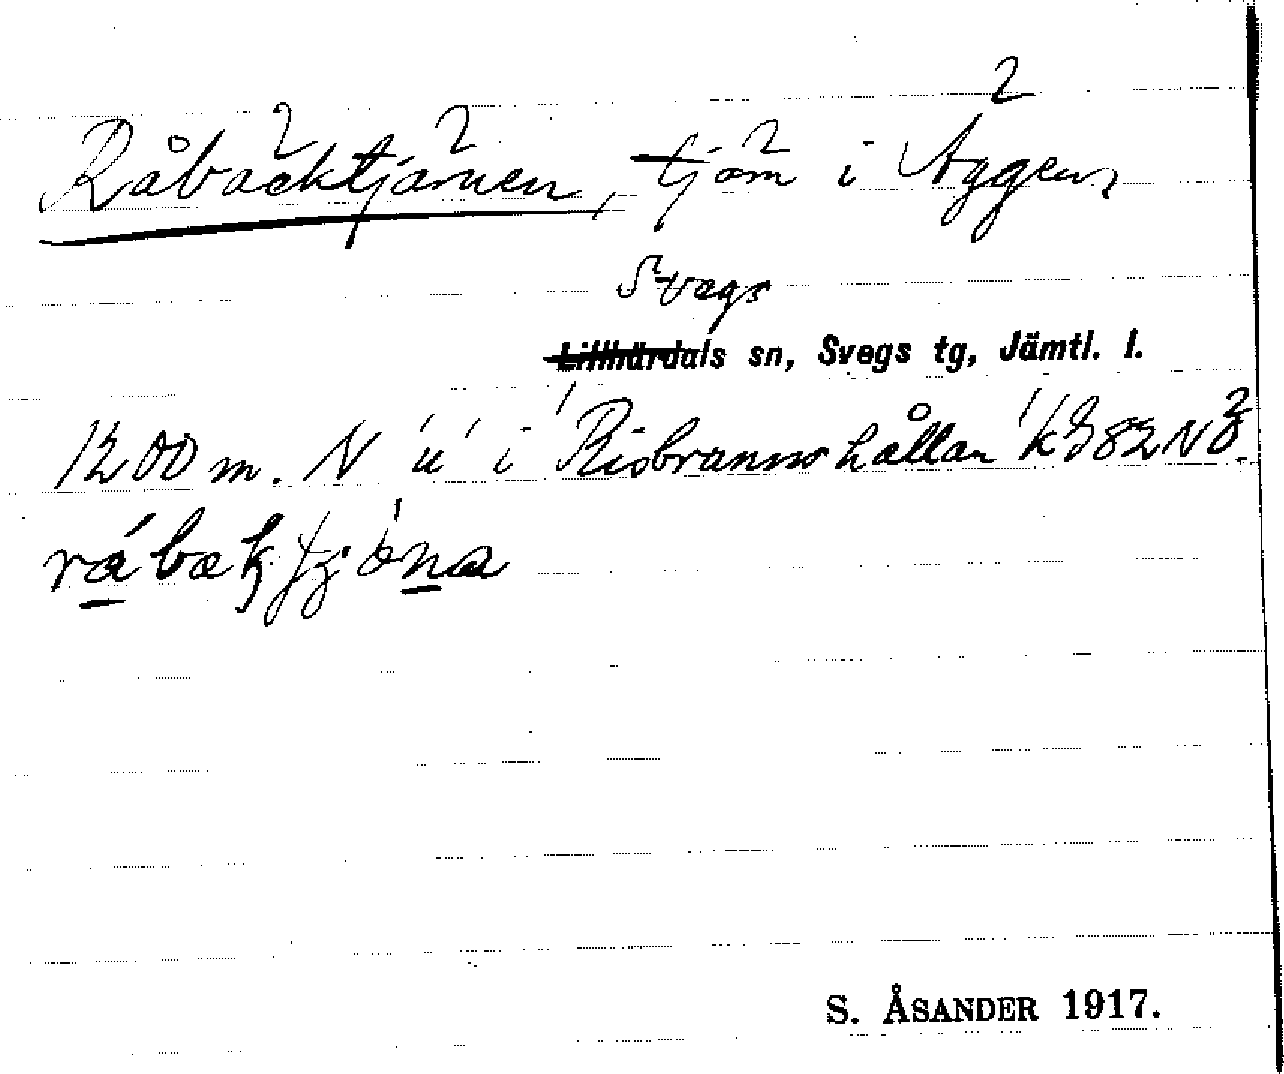 Råbäcktjärnen, tjärn i Äggen,
Svegs
Lillhärdals sn, Svegs tg, Jämtl. l.
1200 m. N ú i Risbrannshållan k 382 NÖ.
rábækt̡jǿna
S. ÅSANDER 1917.